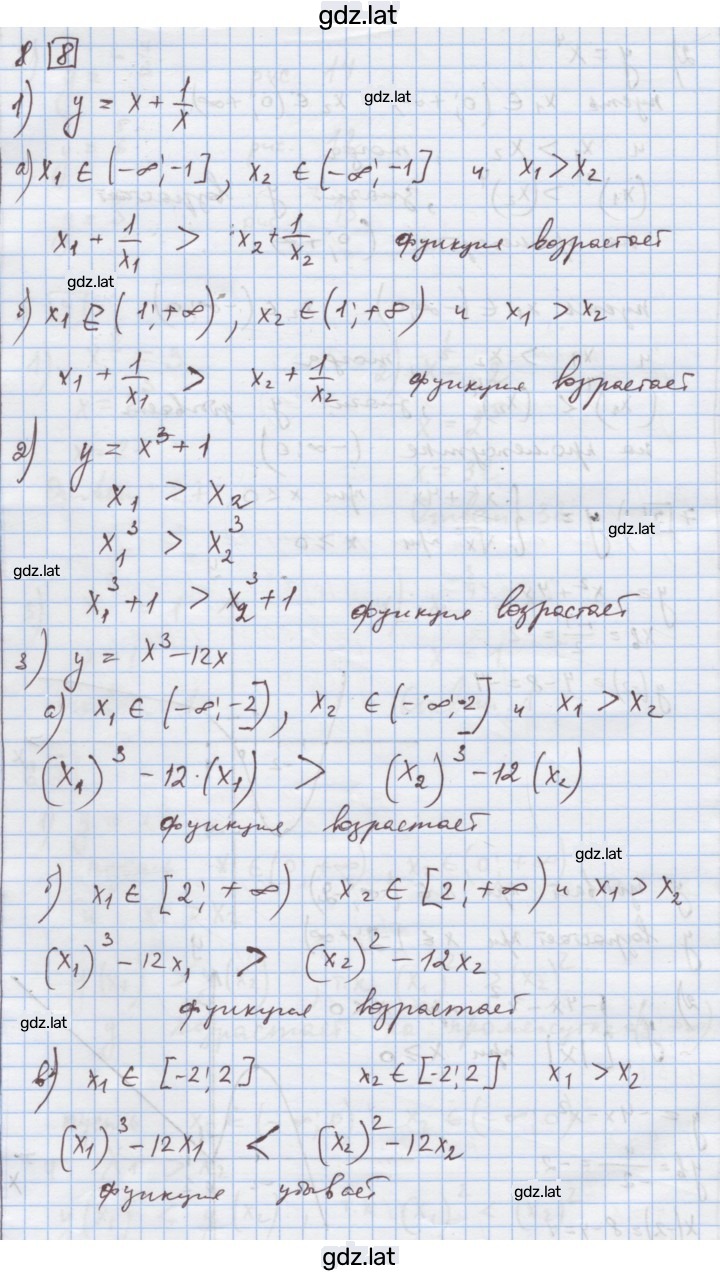 gdz.lat
8 [8]
1) y = x + 1/x
gdz.lat
а) x₁ ∈ (-∞; -1], x₂ ∈ (-∞; -1] и x₁ > x₂
x₁ + 1/x₁ > x₂ + 1/x₂ функция возрастает
gdz.lat
б) x₁ ∈ (1; +∞), x₂ ∈ (1; +∞) и x₁ > x₂
x₁ + 1/x₁ > x₂ + 1/x₂ функция возрастает
2) y = x³ + 1
x₁ > x₂
x₁³ > x₂³
gdz.lat
gdz.lat
x₁³ + 1 > x₂³ + 1 функция возрастает
3) y = x³ - 12x
а) x₁ ∈ (-∞; -2], x₂ ∈ (-∞; -2] и x₁ > x₂
(x₁)³ - 12·(x₁) > (x₂)³ - 12(x₂)
функция возрастает
gdz.lat
б) x₁ ∈ [2; +∞) x₂ ∈ [2; +∞) и x₁ > x₂
(x₁)³ - 12x₁ > (x₂)² - 12x₂
функция возрастает
gdz.lat
в) x₁ ∈ [-2; 2] x₂ ∈ [-2; 2] x₁ > x₂
(x₁)³ - 12x₁ < (x₂)² - 12x₂
функция убывает
gdz.lat
gdz.lat